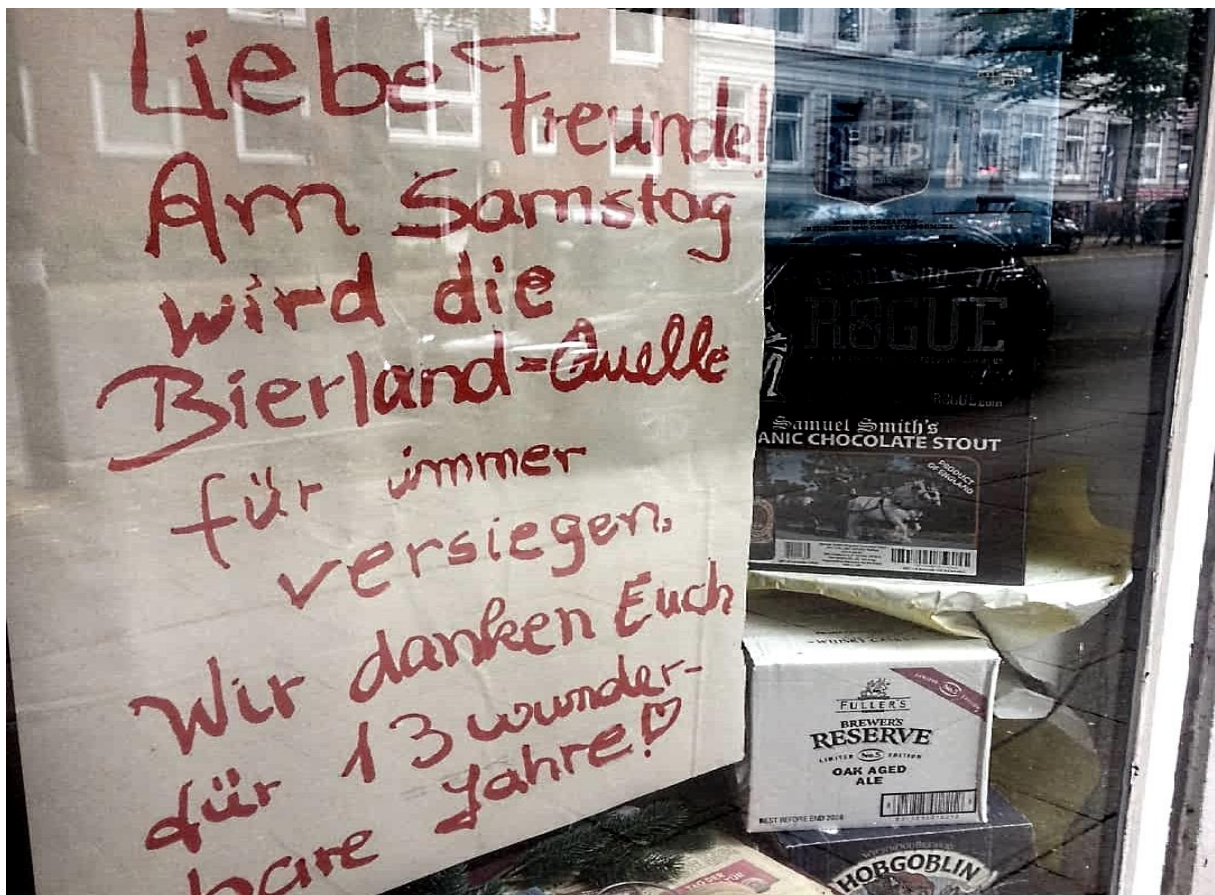 Liebe
Freunde!
Am Samstag
wird die
Bierland=Quelle
für immer
versiegen.
Wir danken Euch
für 13 wunder-
bare Jahre!
SHOP
ROGUE
ROGUE.com
Samuel Smith's
ANIC CHOCOLATE STOUT
PRODUCT
OF ENGLAND
FULLER'S
BREWER'S
RESERVE
LIMITED No.5 EDITION
OAK AGED
ALE
BEST BEFORE END 2028
HOBGOBLIN